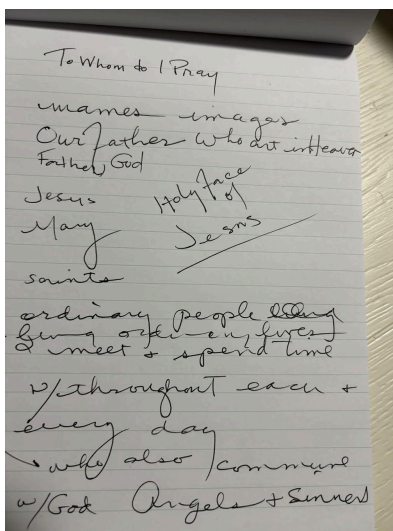 To Whom do I Pray
names images
Our Father Who art in Heaven
Father, God
Jesus
Holy face of Jesus
Mary
saints
ordinary people
living ordinary lives
I meet + spend time
w/ throughout each +
every day
who also commune
w/ God Angels + Sinners